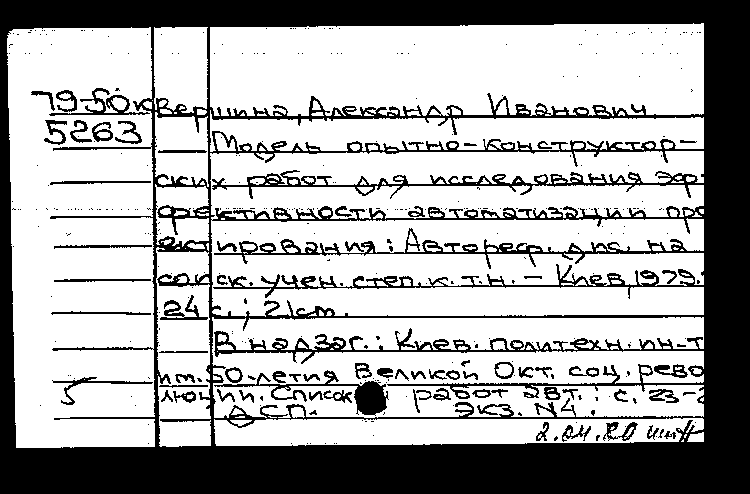 79-50к Вершина, Александр Иванович.
5263 Модель опытно-конструктор-
ских работ для исследования эф-
фективности автоматизации про
ектирования: Автореф. дис. на
соиск. учен. степ. к.т.н. – Киев, 1979.
24 с.; 21 см.
В надзаг.: Киев. политехн. ин-т
им. 50-летия Великой Окт. соц. рево
5 люции. Список работ авт.: с. 23-2
ДСП. Экз. N4.
2.04.80